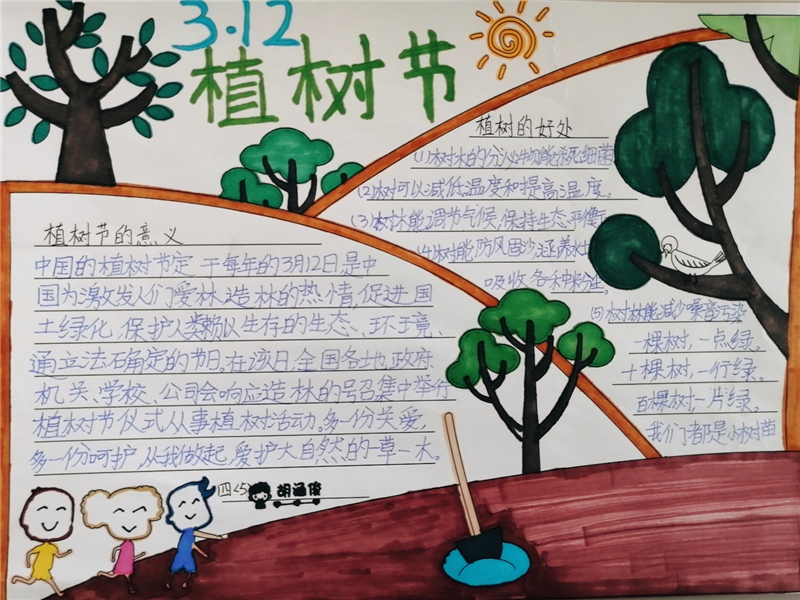 3.12
植树节
植树的好处
(1)树木的分泌物能杀死细菌
(2)树可以减低温度和提高湿度。
(3)树木能调节气候,保持生态平衡
(4)树能防风固沙,涵养水土
吸收各种粉尘,
(5)树林能减少噪音污染
一棵树,一点绿。
十棵树,一行绿。
百棵树,一片绿。
我们都是小树苗
植树节的意义
中国的植树节定于每年的3月12日,是中
国为激发人们爱林造林的热情,促进国
土绿化,保护人类赖以生存的生态、环境、
通立法石确定的节日。在该日,全国各地,政府
机关、学校、公司会响应造林的号召集中举行
植树节仪式从事植树活动。多一份关爱,
多一份呵护,从我做起,爱护大自然的一草一木。
四<5>